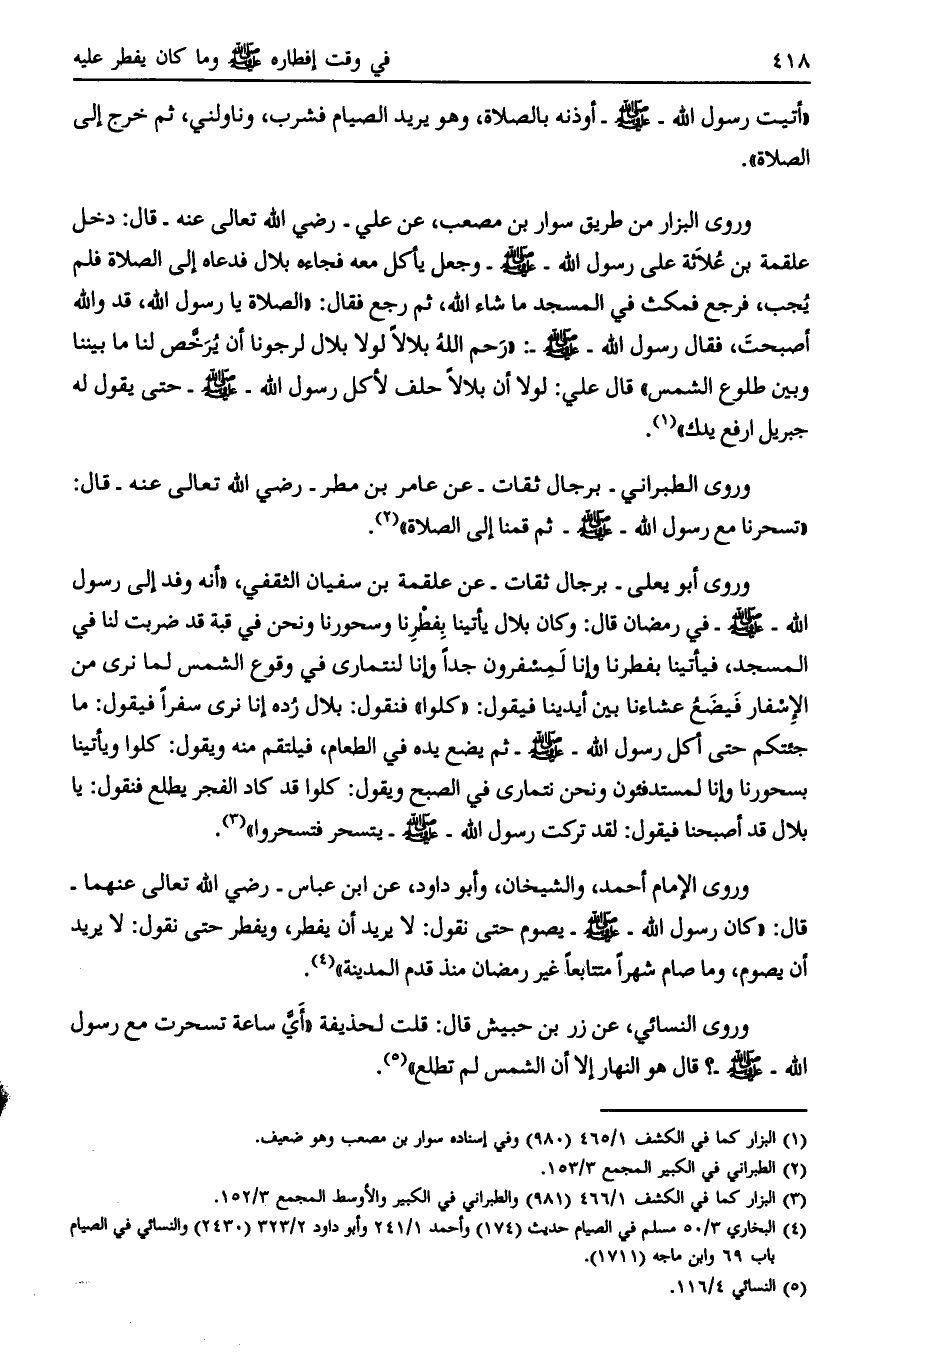 ٤١٨ في وقت إفطاره ﷺ وما كان يفطر عليه
«أتيت رسول الله ـ ﷺ ـ أوذنه بالصلاة، وهو يريد الصيام فشرب، وناولني، ثم خرج إلى
الصلاة».
وروى البزار من طريق سوار بن مصعب، عن علي ـ رضي الله تعالى عنه ـ قال: دخل
علقمة بن عُلاَثَة على رسول الله ـ ﷺ ـ وجعل يأكل معه فجاءه بلال فدعاه إلى الصلاة فلم
يُجب، فرجع فمكث في المسجد ما شاء الله، ثم رجع فقال: «الصلاة يا رسول الله، قد والله
أصبحتَ، فقال رسول الله ـ ﷺ ـ: «رَحم اللهُ بلالاً لولا بلال لرجونا أن يُرَخَّص لنا ما بيننا
وبين طلوع الشمس» قال علي: لولا أن بلالاً حلف لأكل رسول الله ـ ﷺ ـ حتى يقول له
جبريل ارفع يدك»(١).
وروى الطبراني ـ برجال ثقات ـ عن عامر بن مطر ـ رضي الله تعالى عنه ـ قال:
«تسحرنا مع رسول الله ـ ﷺ ـ ثم قمنا إلى الصلاة»(٢).
وروى أبو يعلى ـ برجال ثقات ـ عن علقمة بن سفيان الثقفي، «أنه وفد إلى رسول
الله ـ ﷺ ـ في رمضان قال: وكان بلال يأتينا بِفطْرِنا وسحورنا ونحن في قبة قد ضربت لنا في
المسجد، فيأتينا بفطرنا وإنا لَمِسْفرون جداً وإنا لنتمارى في وقوع الشمس لما نرى من
الإِسْفار فَيضَعُ عشاءنا بين أيدينا فيقول: «كلوا» فنقول: بلال رُده إنا نرى سفراً فيقول: ما
جئتكم حتى أكل رسول الله ـ ﷺ ـ ثم يضع يده في الطعام، فيلتقم منه ويقول: كلوا ويأتينا
بسحورنا وإنا لمستدفئون ونحن نتمارى في الصبح ويقول: كلوا قد كاد الفجر يطلع فنقول: يا
بلال قد أصبحنا فيقول: لقد تركت رسول الله ـ ﷺ ـ يتسحر فتسحروا»(٣).
وروى الإمام أحمد، والشيخان، وأبو داود، عن ابن عباس ـ رضي الله تعالى عنهما ـ
قال: «كان رسول الله ـ ﷺ ـ يصوم حتى نقول: لا يريد أن يفطر، ويفطر حتى نقول: لا يريد
أن يصوم، وما صام شهراً متتابعاً غير رمضان منذ قدم المدينة»(٤).
وروى النسائي، عن زر بن حبيش قال: قلت لحذيفة «أَيَّ ساعة تسحرت مع رسول
الله ـ ﷺ ـ؟ قال هو النهار إلا أن الشمس لم تطلع»(٥).
(١) البزار كما في الكشف ٤٦٥/١ (٩٨٠) وفي إسناده سوار بن مصعب وهو ضعيف.
(٢) الطبراني في الكبير المجمع ١٥٣/٣.
(٣) البزار كما في الكشف ٤٦٦/١ (٩٨١) والطبراني في الكبير والأوسط المجمع ١٥٢/٣.
(٤) البخاري ٥٠/٣ مسلم في الصيام حديث (١٧٤) وأحمد ٢٤١/١ وأبو داود ٣٢٣/٢ (٢٤٣٠) والنسائي في الصيام
باب ٦٩ وابن ماجه (١٧١١).
(٥) النسائي ١١٦/٤.